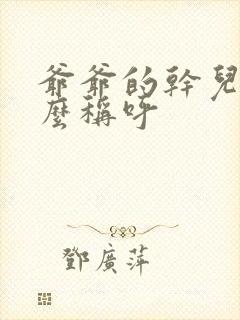 爺爺的幹兒
麼稱呼
鄧廣萍